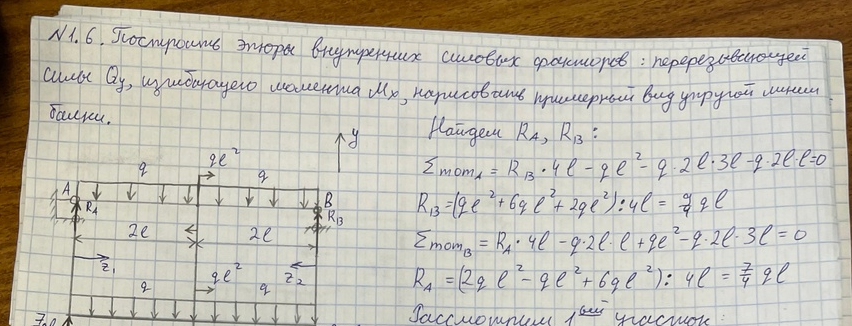 N1.6. Построить эпюры внутренних силовых факторов: перерезывающей
силы Qy, изгибающего момента Mx, нарисовать примерный вид упругой линии
балки.
Найдем RA, RB:
y
ql²
q
q
Σmom_A = RB·4l - ql² - q·2l·3l - q·2l·l = 0
A
B
RA
RB
RB = (ql² + 6ql² + 2ql²) : 4l = 9/4 ql
2l
2l
Σmom_B = RA·4l - q·2l·l + ql² - q·2l·3l = 0
z₁
z₂
q
ql²
q
RA = (2ql² - ql² + 6ql²) : 4l = 7/4 ql
Рассмотрим 1ый участок: